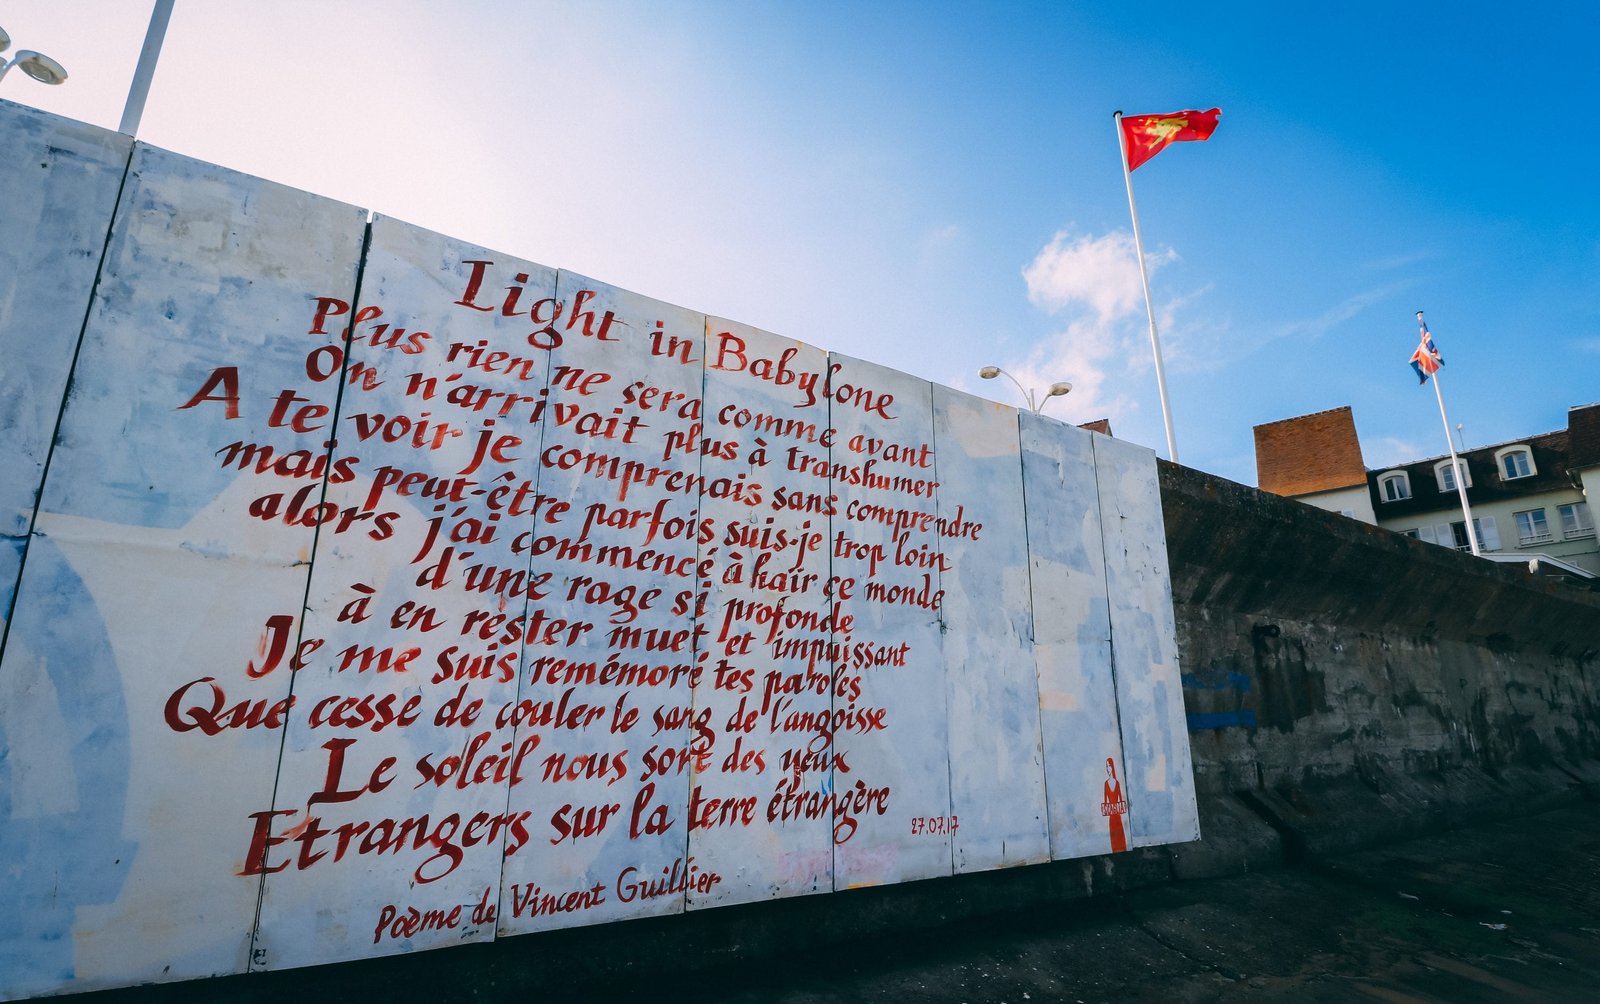 Light in Babylone
Plus rien ne sera comme avant
On n'arrivait plus à transhumer
A te voir je comprenais sans comprendre
mais peut-être parfois suis-je trop loin
alors j'ai commencé à haïr ce monde
d'une rage si profonde
à en rester muet et impuissant
Je me suis remémoré tes paroles
Que cesse de couler le sang de l'angoisse
Le soleil nous sort des yeux
Etrangers sur la terre étrangère
27.07.17
Poème de Vincent Guillier